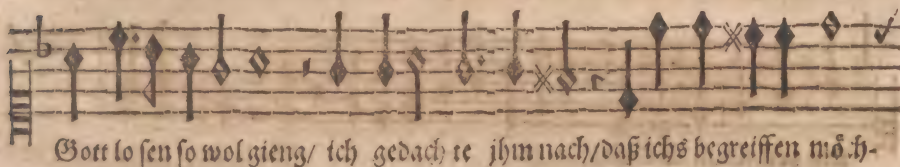 Gott lo sen so wol gieng/ ich gedach te jhm nach/daß ichs begreiffen moͤch-